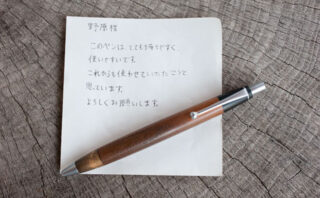 野原様
このペンは とても手うすく、
使いやすいです。
これからも使わせていただこうと
思っています。
よろしくお願いします。